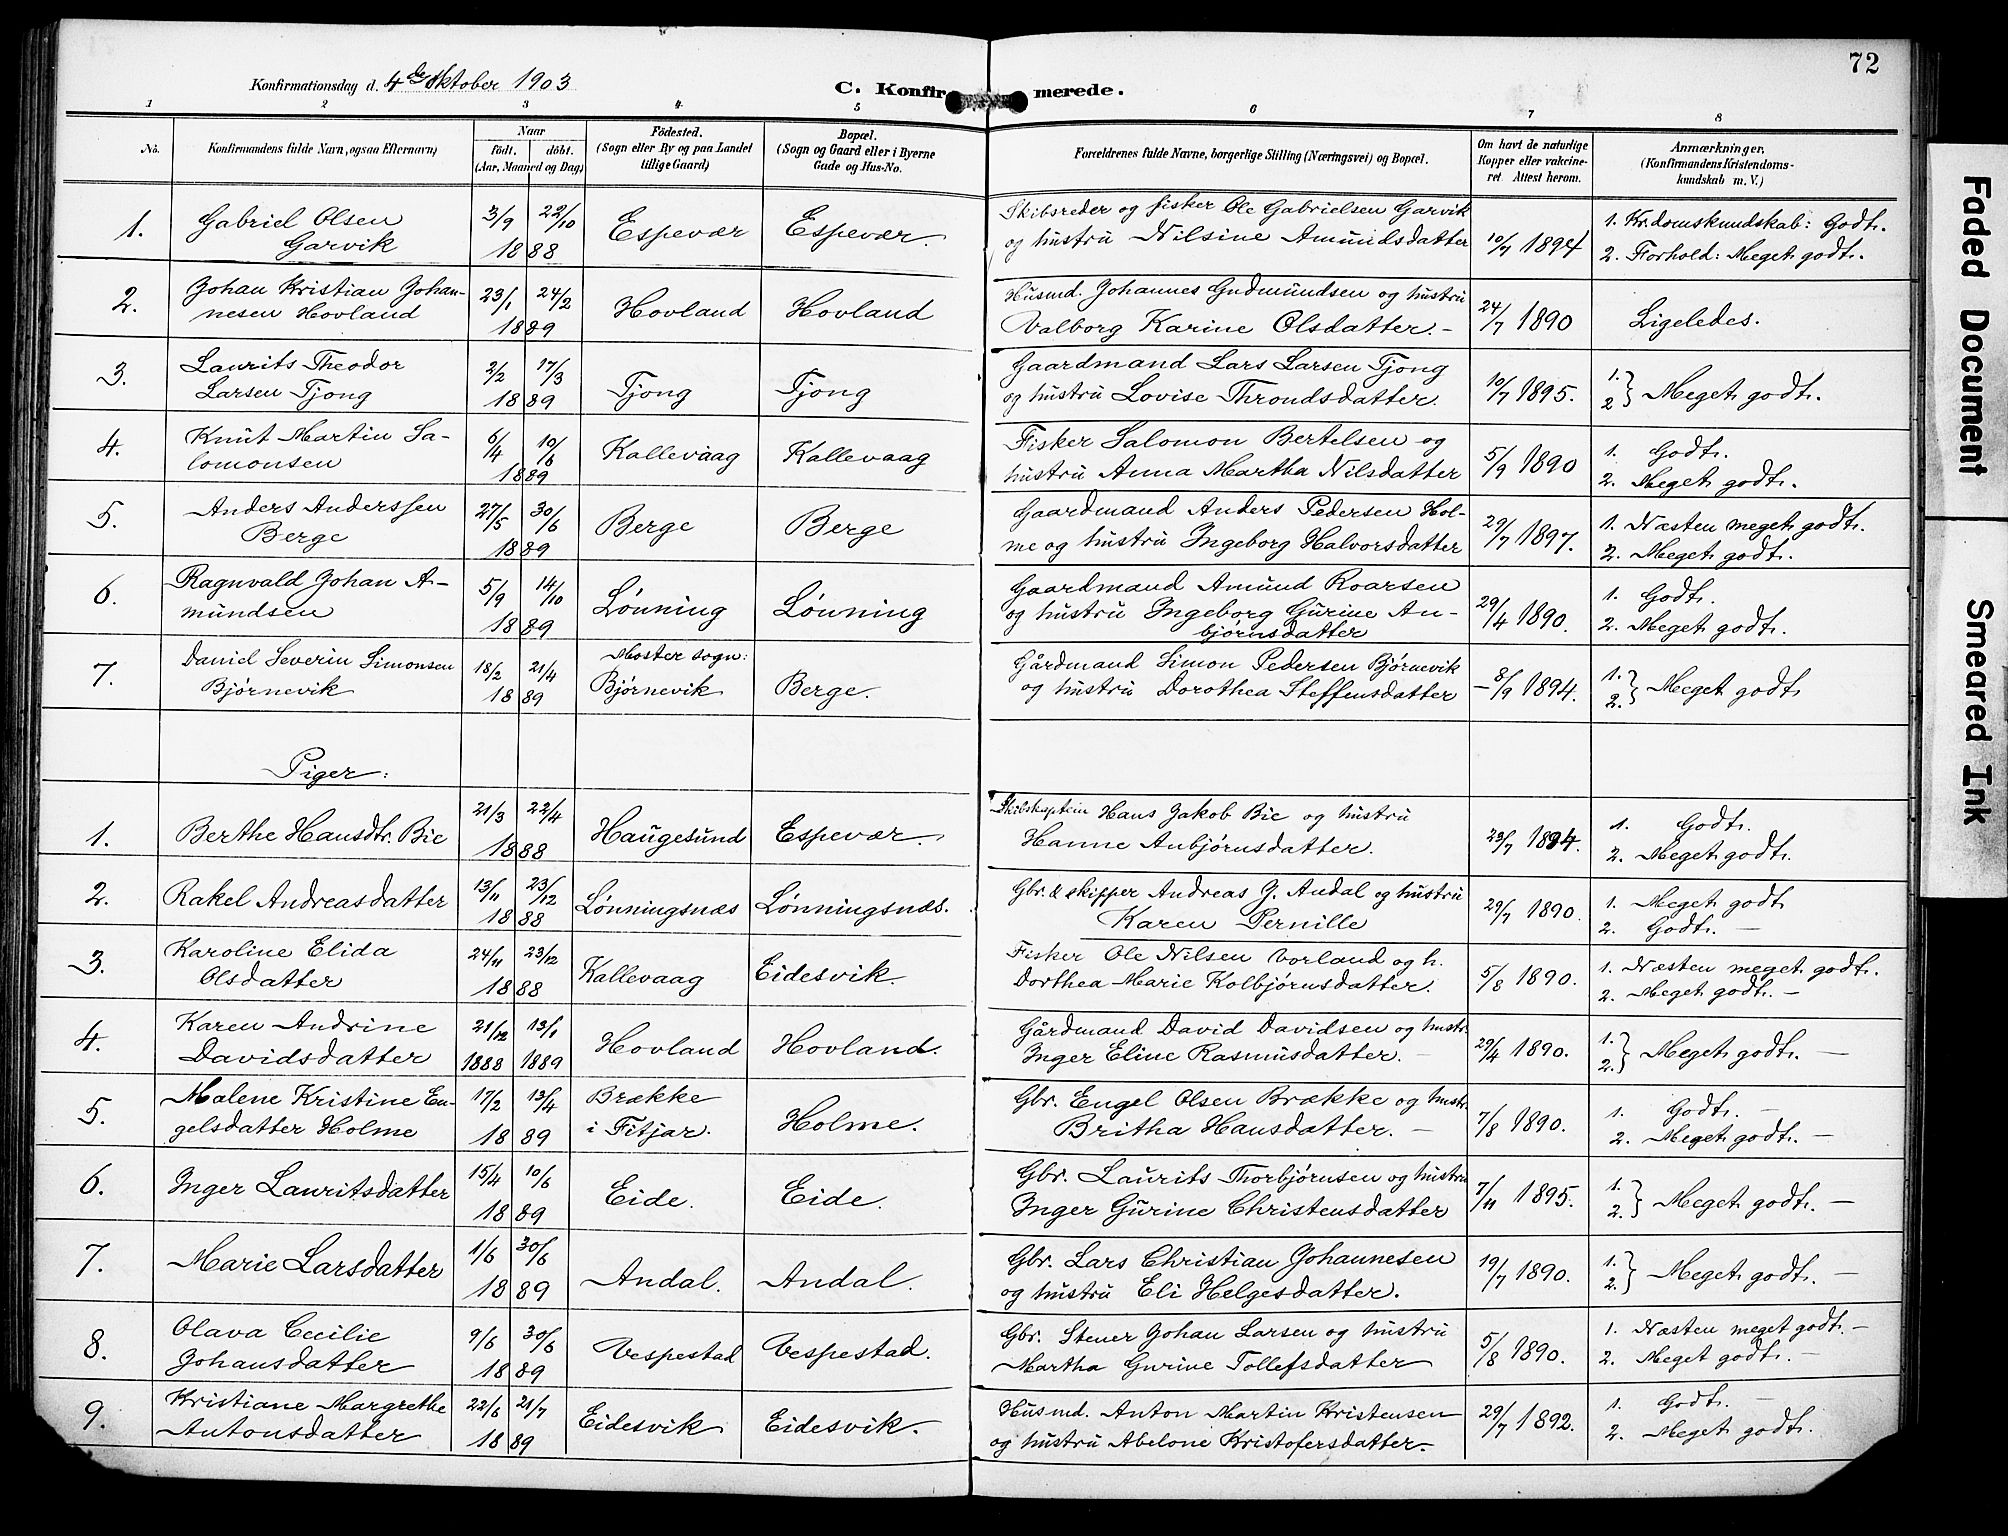 72
Konfirmationsdag d. 4de Oktober 1903
C. Konfirmerede.
1 2 3 4 5 6 7 8
No. Konfirmandens fulde Navn, ogsaa Efternavn) Naar født. døbt. (Aar, Maaned og Dag) Fødested. (Sogn eller By og paa Landet tillige Gaard) Bopæl. (Sogn og Gaard eller i Byerne Gade og Hus-No. Forældrenes fulde Navne, borgerlige Stilling (Næringsvei) og Bopæl. Om havt de naturlige Kopper eller vakcineret Attest herom. Anmærkninger. (Konfirmandens Kristendomskundskab m. V.)
1. Gabriel Olsen Garvik 3/9 22/10 1888 Espevær Espevær. Skibsreder og fisker Ole Gabrielsen Garvik og hustru Nilsine Amundsdatter 10/7 1894 1. Kr.domskundskab: Godt. 2. Forhold: Meget godt.
2. Johan Kristian Johannesen Hovland 23/1 24/2 1889 Hovland Hovland Husmd. Johannes Gudmundsen og hustru Valborg Karine Olsdatter. - 24/7 1890 Ligeledes.
3. Laurits Theodor Larsen Tjong 2/2 17/3 1889 Tjong Tjong Gaardmand Lars Larsen Tjong og hustru Lovise Throndsdatter 10/7 1895. 1. 2 } Meget godt.
4. Knut Martin Salomonsen 6/4 10/6 1889 Kallevaag Kallevaag Fisker Salomon Bertelsen og hustru Anna Martha Nilsdatter 5/9 1890 1. Godt. 2. Meget godt.
5. Anders Anderssen Berge 27/5 30/6 1889 Berge Berge Gaardmand Anders Pedersen Holme og hustru Ingeborg Halvorsdatter 29/7 1897. 1. Næsten meget godt. 2. Meget godt.
6. Ragnvald Johan Amundsen 5/9 14/10 1889 Lønning Lønning Gaardmand Amund Roarsen og hustru Ingeborg Gurine Anbjørnsdatter 29/4 1890. 1. Godt. 2. Meget godt.
7. Daniel Severin Simonsen Bjørnevik 18/2 21/4 1889 Moster sogn: Bjørnevik Berge. Gårdmand Simon Pedersen Bjørnevik og hustru Dorothea Steffensdatter - 8/9 1894. 1. 2. } Meget godt
Piger:
1. Berthe Hansdtr. Bie 21/3 22/4 1888 Haugesund Espevær. Skibskaptein Hans Jakob Bie og hustru Hanne Anbjørnsdatter. 23/7 1894. 1. Godt. 2. Meget godt.
2. Rakel Andreasdatter 13/11 23/12 1888 Lønningsnæs Lønningsnæs. Gbr. & skipper Andreas J. Andal og hustru Karen Pernille 29/7 1890. 1. Meget godt 2. Godt. -
3. Karoline Elida Olsdatter 24/11 23/12 1888 Kallevaag Eidesvik. Fisker Ole Nilsen Vorland og h. Dorthea Marie Kolbjørnsdatter. 5/8 1890. 1. Næsten meget godt. 2. Meget godt. -
4. Karen Andrine Davidsdatter 21/12 1888 13/1 1889 Hovland Hovland. Gårdmand David Davidsen og hustr. Inger Eline Rasmusdatter. - 29/4 1890. 1. 2. } Meget godt. -
5. Malene Kristine Engelsdatter Holme 17/2 13/4 1889 Brække i Fitjar. Holme. Gbr. Engel Olsen Brække og hustr. Britha Hansdatter. - 7/8 1890. 1. Godt. - 2. Meget godt. -
6. Inger Lauritsdatter 15/4 10/6 1889 Eide. Eide. Gbr. Laurits Thorbjørnsen og hustru Inger Gurine Christensdatter 7/11 1895. 1. 2. } Meget godt. -
7. Marie Larsdatter 1/6 30/6 1889 Andal. Andal. Gbr. Lars Christian Johannesen og hustru Eli Helgesdatter. 19/7 1890. 1. 2. } Meget godt. -
8. Olava Cecilie Johansdatter 9/6 30/6 1889 Vespestad Vespestad. Gbr. Stener Johan Larsen og hustru Martha Gurine Tollefsdatter 5/8 1890. 1. Næsten meget godt. - 2. Meget godt. -
9. Kristiane Margrethe Antonsdatter 22/6 21/7 1889 Eidesvik Eidesvik. Husmd. Anton Martin Kristensen og hustru Abelone Kristofersdatter. - 29/7 1892. 1. Godt. - 2. Meget godt.
Faded Document
Smeared Ink